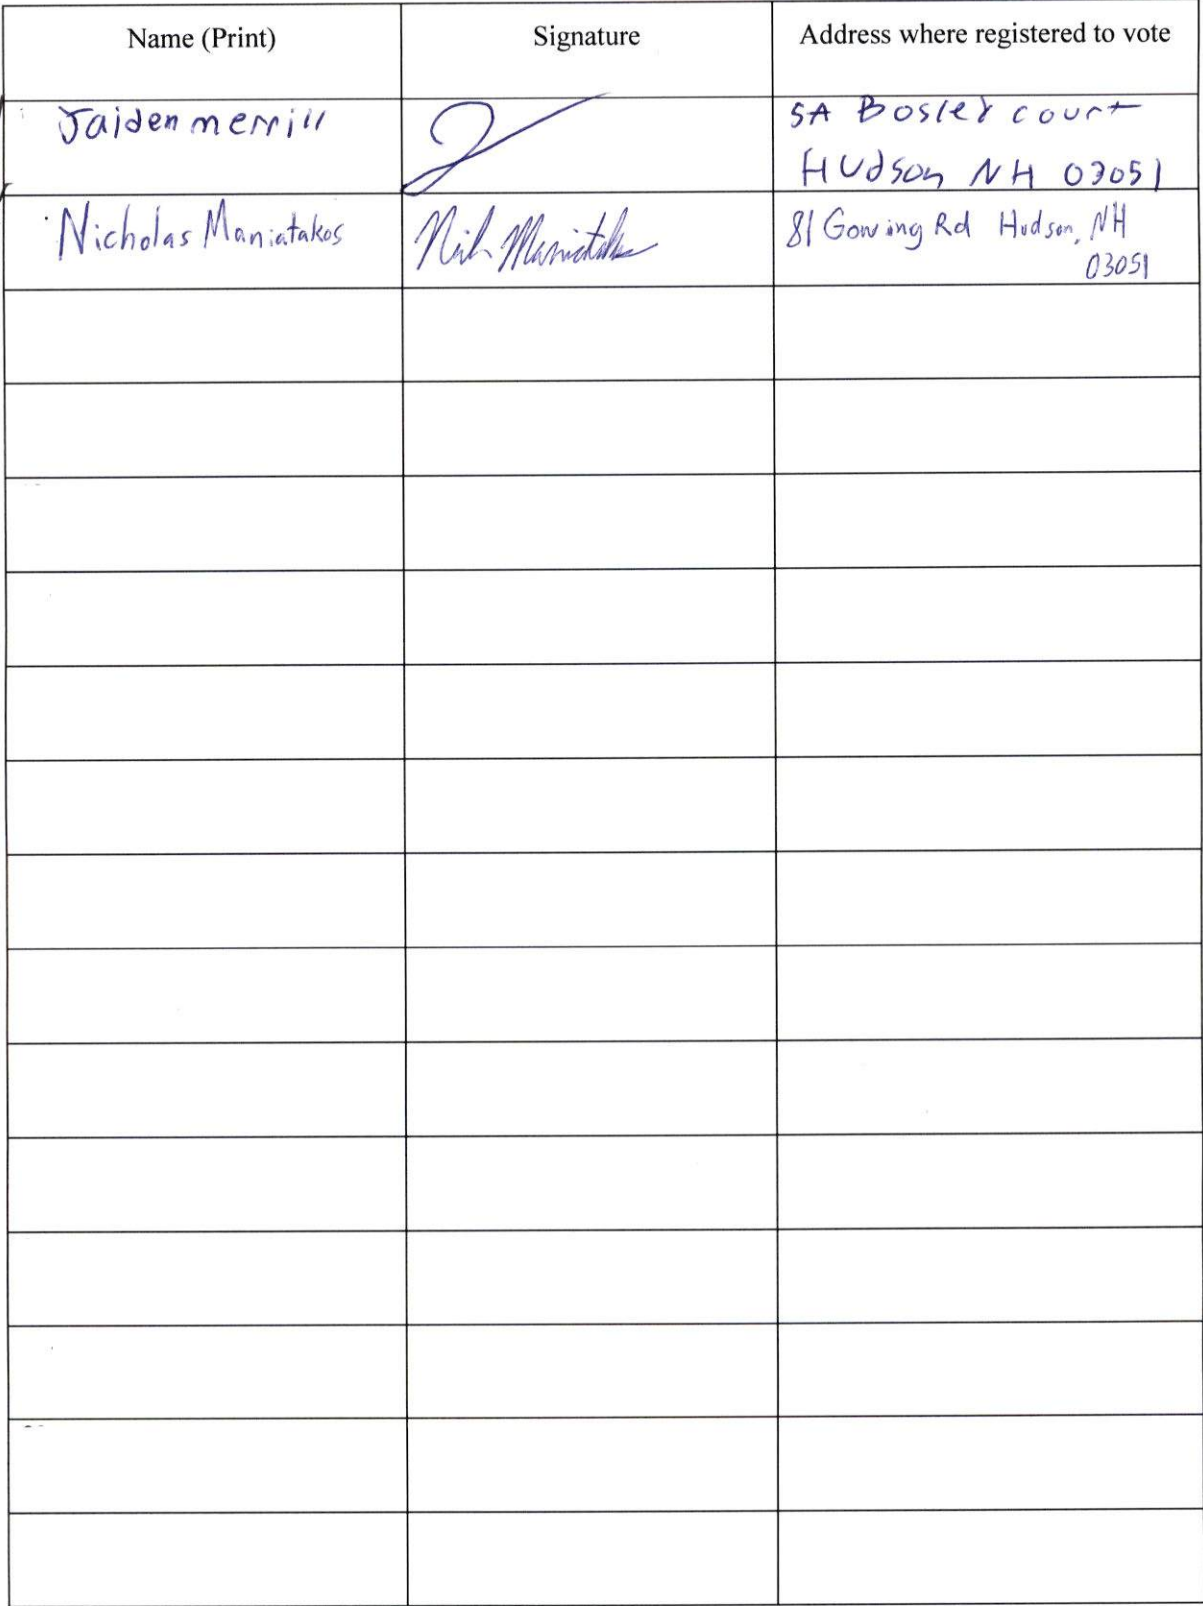 Name (Print) Signature Address where registered to vote
Jaiden merrill 5A Bosley court
HUdson NH 03051
Nicholas Maniatakos Nick Maniatakos 81 Gowing Rd Hudson, NH
03051